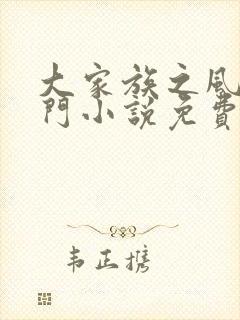 大家族之風
門小說免費
韦正携